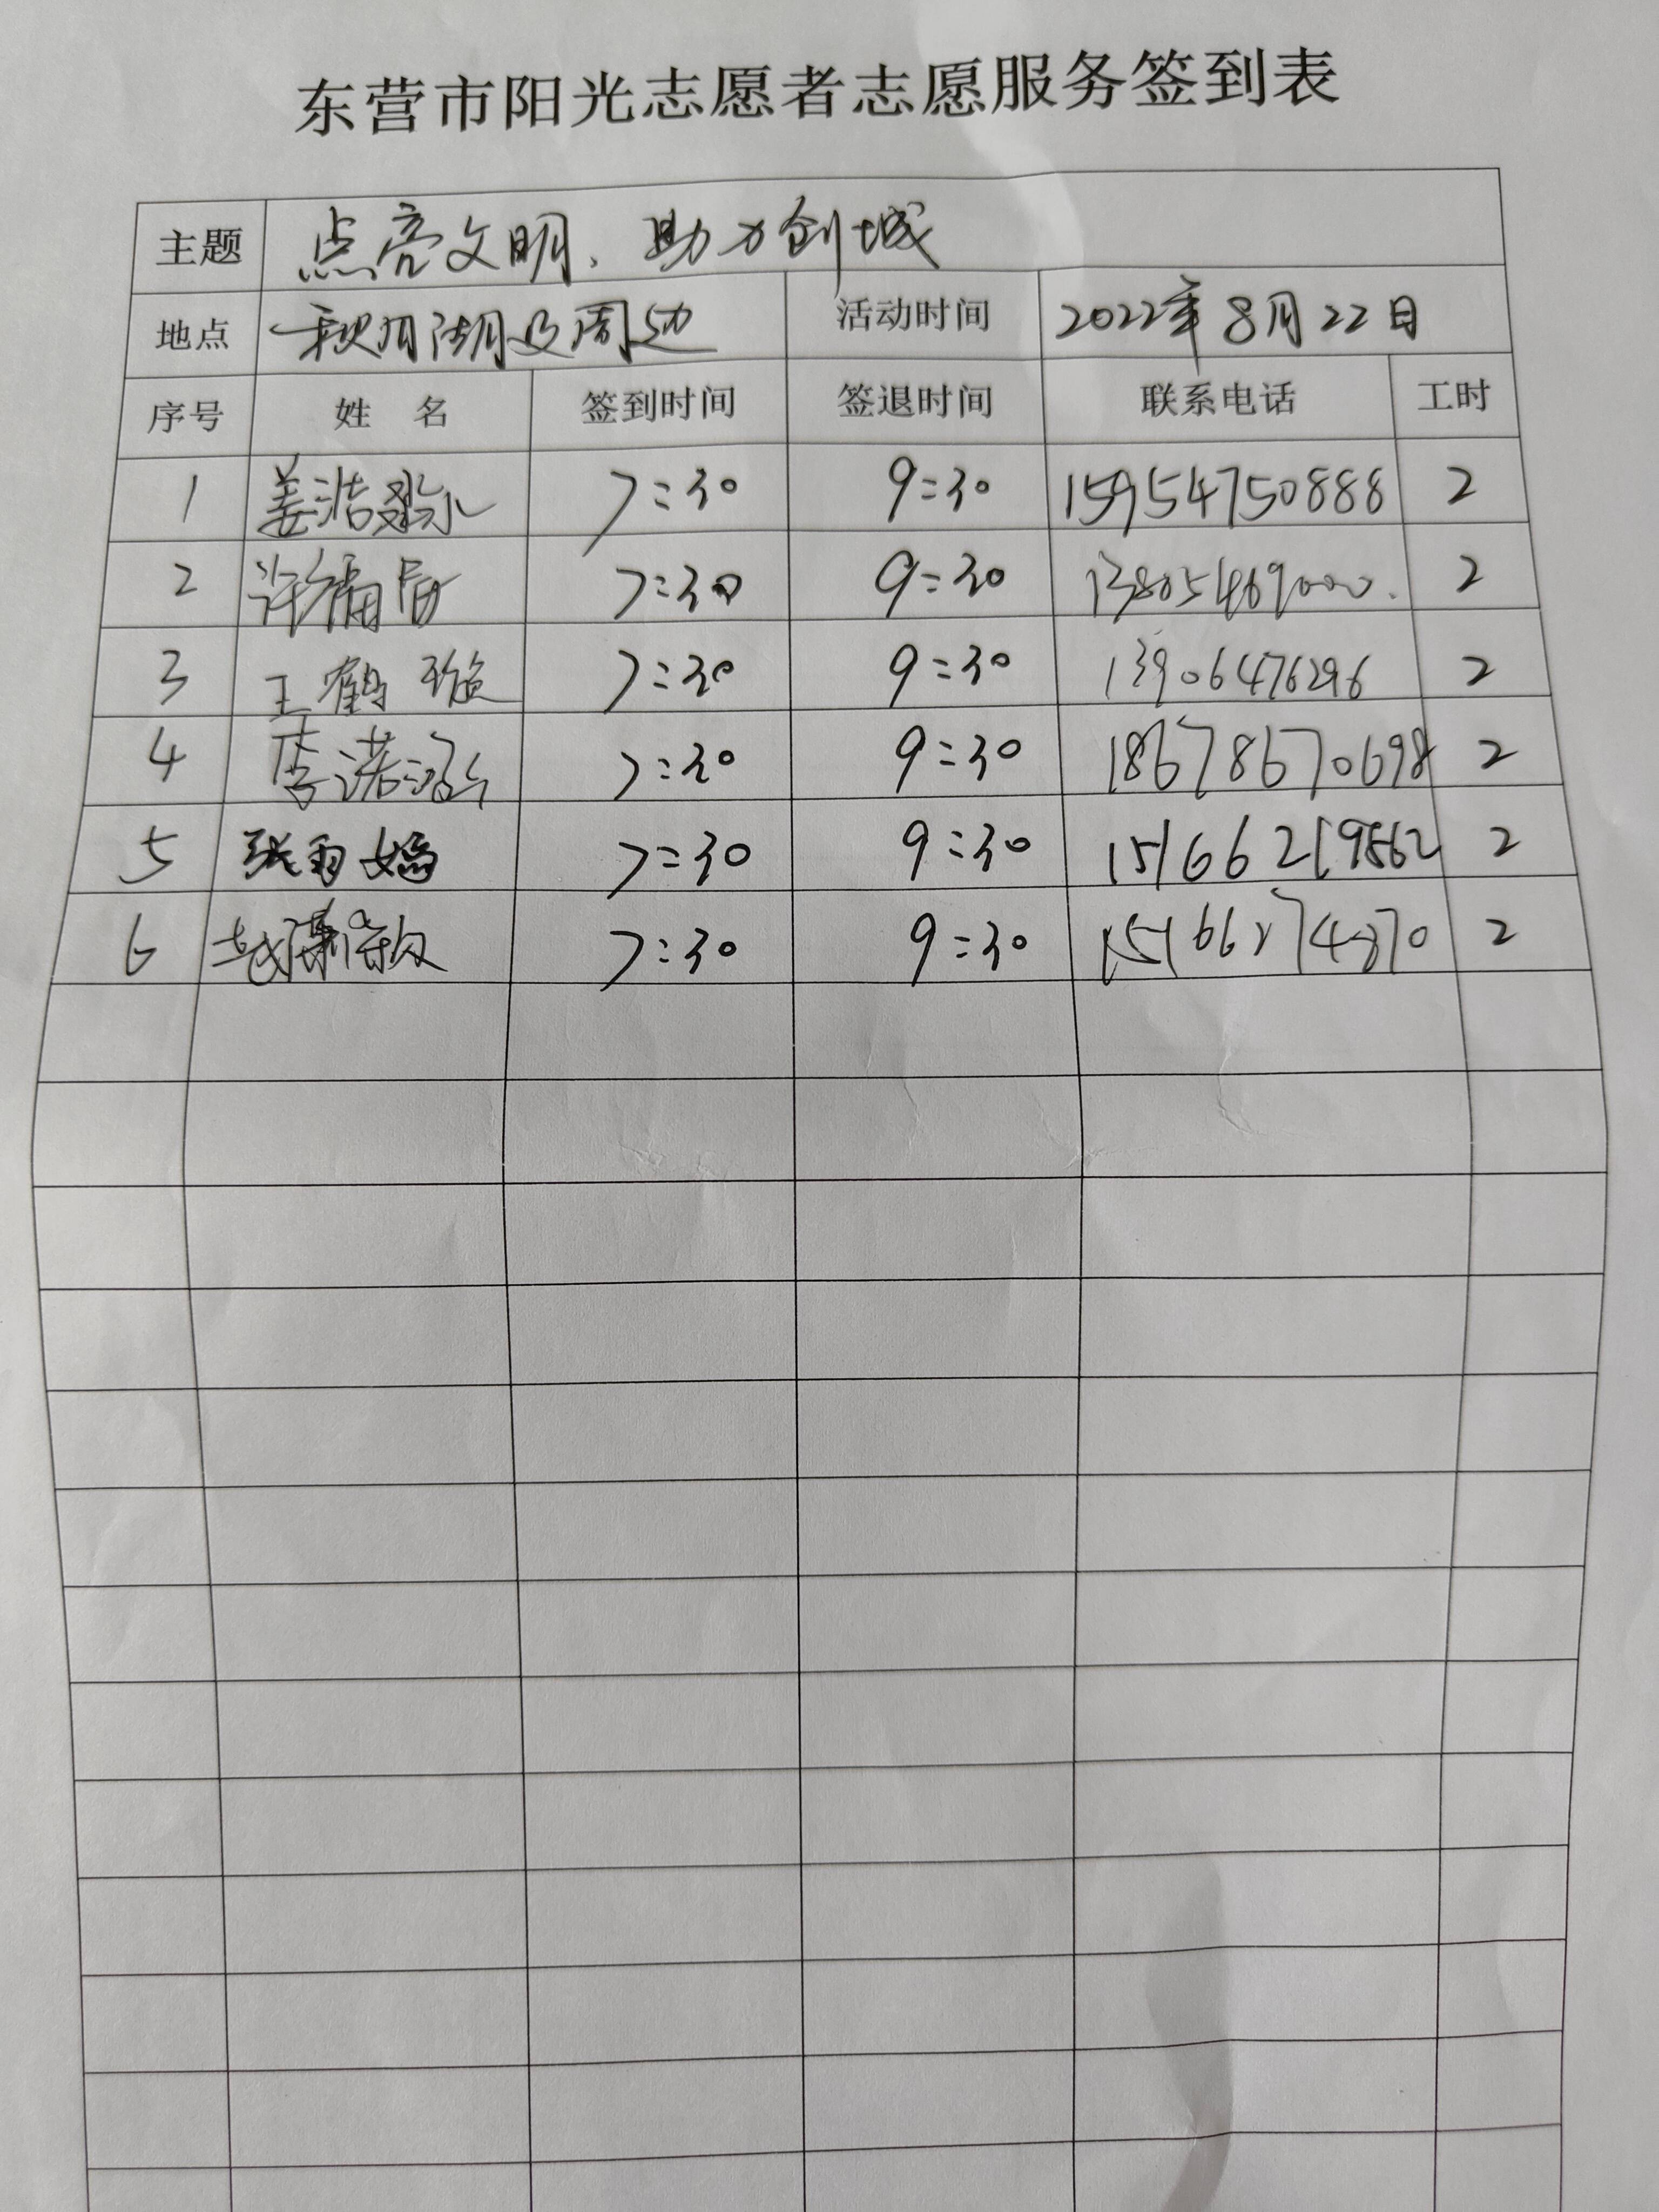 东营市阳光志愿者志愿服务签到表
主题 点亮文明、助力创城
地点 秋月湖及周边 活动时间 2022年8月22日
序号 姓名 签到时间 签退时间 联系电话 工时
1 姜浩 7:30 9:30 15954750888 2
2 许 7:30 9:30 13805469000. 2
3 王鹤璇 7:30 9:30 13906476296 2
4 李诺泓 7:30 9:30 18678670698 2
5 张雨嫣 7:30 9:30 2
6 赵 7:30 9:30 2